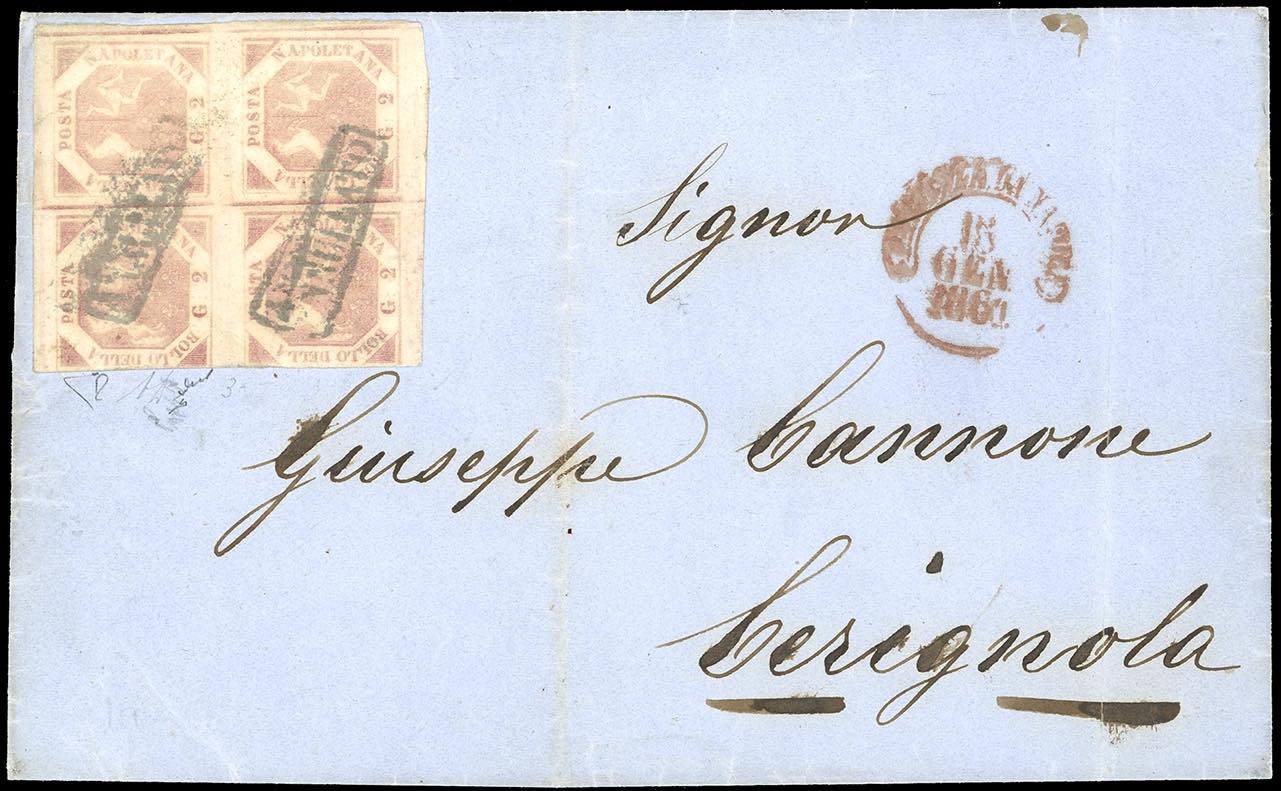 POSTA NAPOLETANA G 2
POSTA NAPOLETANA G 2
ANNULLATO
ANNULLATO
POSTA G 2 BOLLO DELLA
G 2 BOLLO DELLA
Signor
18
GEN
1861
Giuseppe Cannone
Cerignola